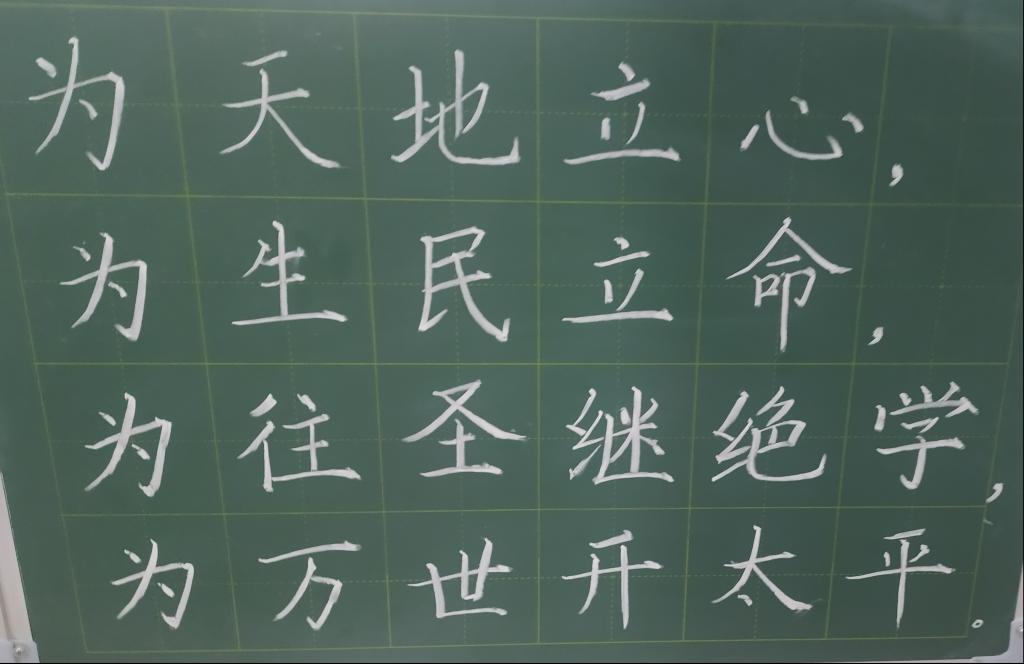 为天地立心，
为生民立命，
为往圣继绝学，
为万世开太平。